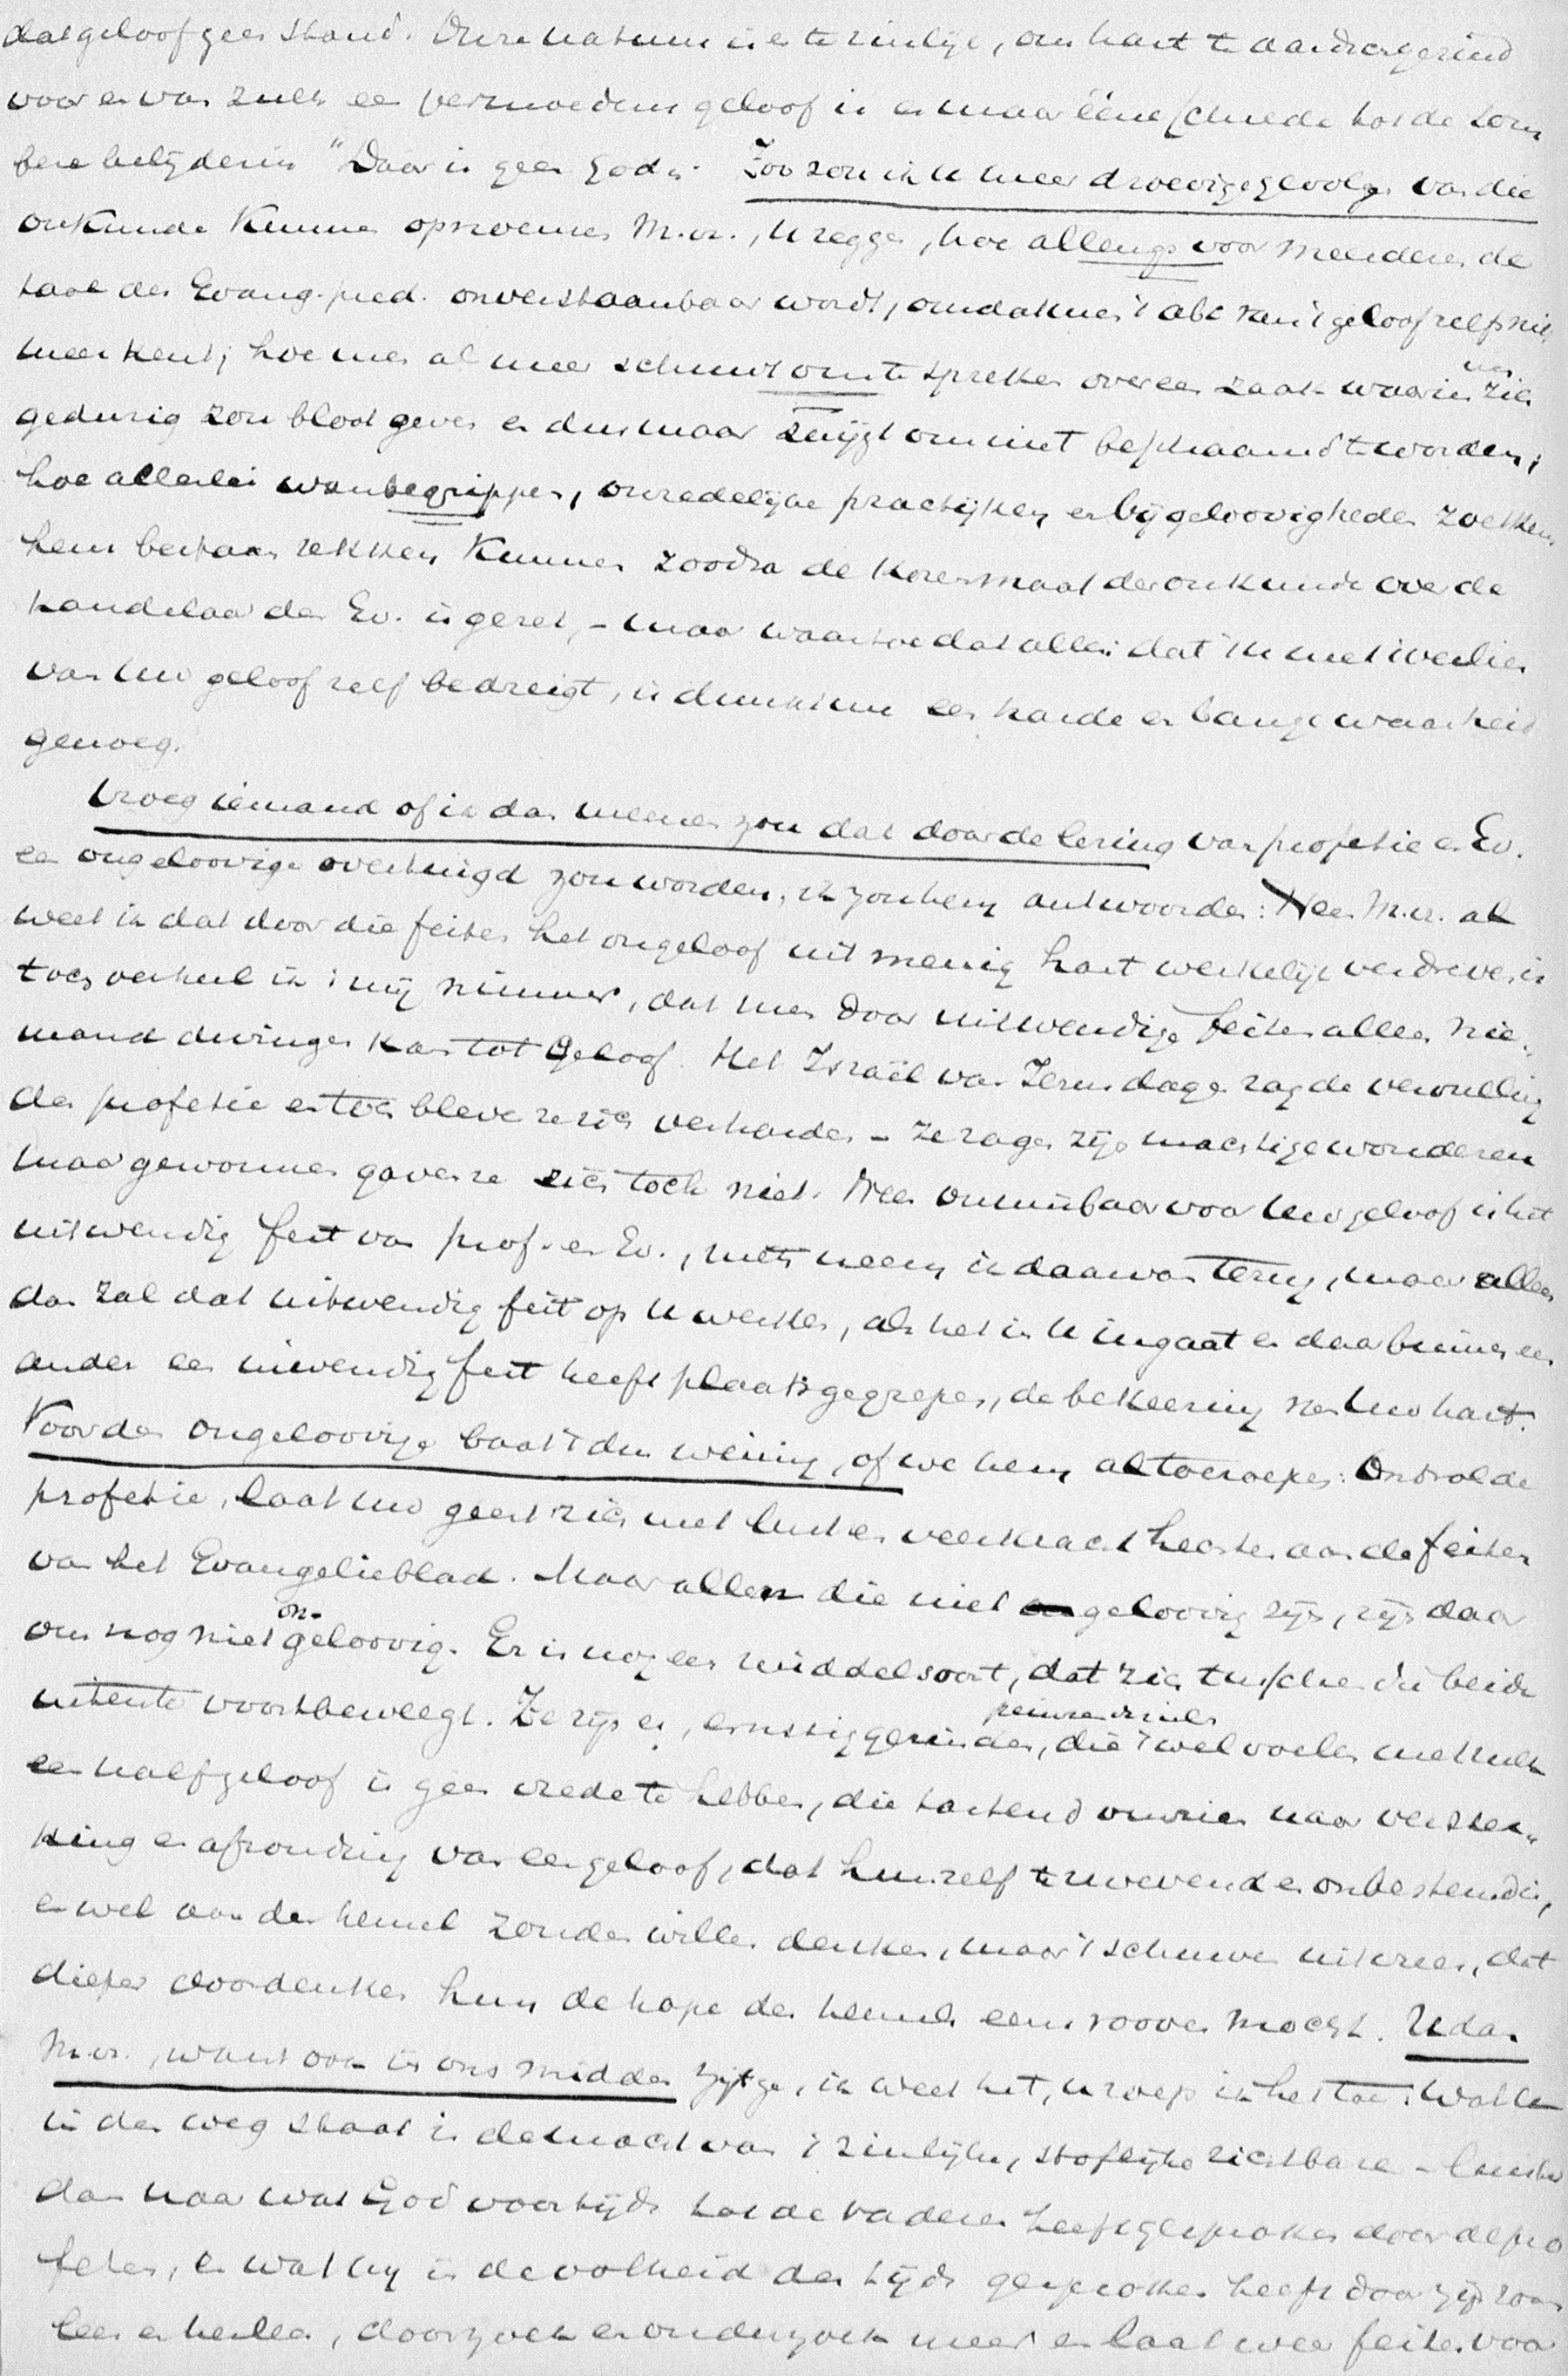 dat geloof geen stand. Onze natuur is er te zinlijk, ons hart te aardschgezind
voor en van zulk een vermoedens geloof is er maar ééne schrede tot de som
bere belijdenis "Daar is geen God". Zoo zou ik u meer droevige gevolgen van die
onkunde kunnen opnoemen M.vr., u zeggen, hoe allengs voor meerderen de
taal der Evang. pred. onverstaanbaar wordt, omdat men 't abc van 't geloof zelfs niet
meer kent; hoe men al meer schuwt om te spreken over een zaak waarin men zich
gedurig zou bloot geven en dus maar zwijgt om niet beschaamd te worden;
hoe allerlei wanbegrippen, onredelijke practijken en bijgeloovigheden zoetkens
hun bestaan rekken kunnen zoodra de korenmaat der onkunde over de
kandelaar der Ev. is gezet, – maar waartoe dat alles: dat 't u met verlies
van uw geloof zelf bedreigt, is dunkt me een harde en bange waarheid
genoeg.
Vroeg iemand of ik dan meenen zou dat door de lezing van profetie en Ev.
een ongeloovige overtuigd zou worden, ik zou hem antwoorden: Neen M.vr. al
weet ik dat door die feiten het ongeloof uit menig hart werkelijk verdreven is
toch verheel ik 't mij nimmer, dat men door uitwendige feiten alleen nie-
mand dwingen kan tot geloof. Het Israël van Jezus dagen zag de vervulling
der profetie en toch bleven ze zich verharden – ze zagen zijn machtige wonderen
maar gewonnen gaven ze zich toch niet. Neen onmisbaar voor uw geloof is het
uitwendig feit van prof. en Ev., niets neem ik daarvan terug, maar alleen
dan zal dat uitwendig feit op u werken, als het in u ingaat en daar binnen een
ander een inwendig feit heeft plaats gegrepen, de bekeering van uw hart.
Voor den ongeloovige baat 't dus weinig, of we hem al toeroepen: Ontvolde
profetie, laat uw geest zich met lust en veerkracht hechten aan de feiten
van het Evangelieblad. Maar allen die niet geloovig zijn, zijn daar
om nog niet on-geloovig. Er is nog een middelsoort, dat zich tusschen die beide
uitersten voortbeweegt. Ze zijn er, ernstig gezinden, peinzenszieken, die 't wel voelen met zulk
een half geloof is geen vrede te hebben, die tastend omzien naar verster-
king en afronding van een geloof, dat hun zelf te zwevend en onbestemd is,
en wel aan den hemel zouden willen denken, maar 't schuwen uit vrees, dat
dieper doordenken hun de hope des hemels eens rooven mocht. U dan
M.vr., want ook in ons midden zijt ge, ik weet het, u roep ik het toe: Wat u
in den weg staat is de macht van 't zinlijke, stoflijke zichtbare – luister
dan naar wat God voortijds tot de vaderen heeft gesproken door de pro
feten, en wat hij in de volheid des tijds gesproken heeft door zijn zoon
lees en herlees, doorzoek en onderzoek meer en laat weer feiten voor